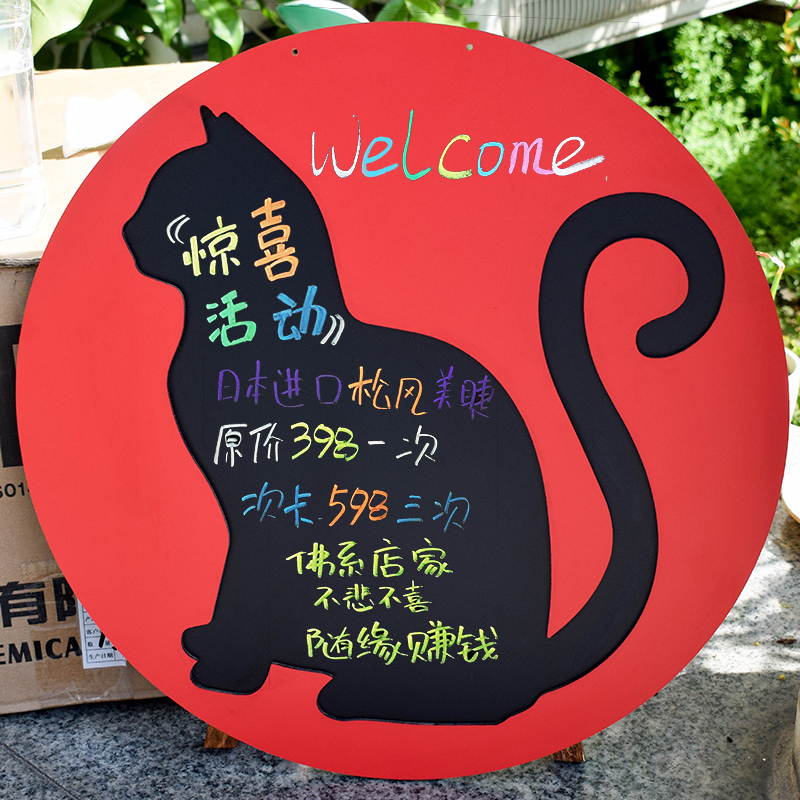 Welcome
《惊喜
活动》
日本进口松风美睫
原价398一次
次卡.598三次
佛系店家
不悲不喜
随缘赚钱
有限
EMICA
生产日期